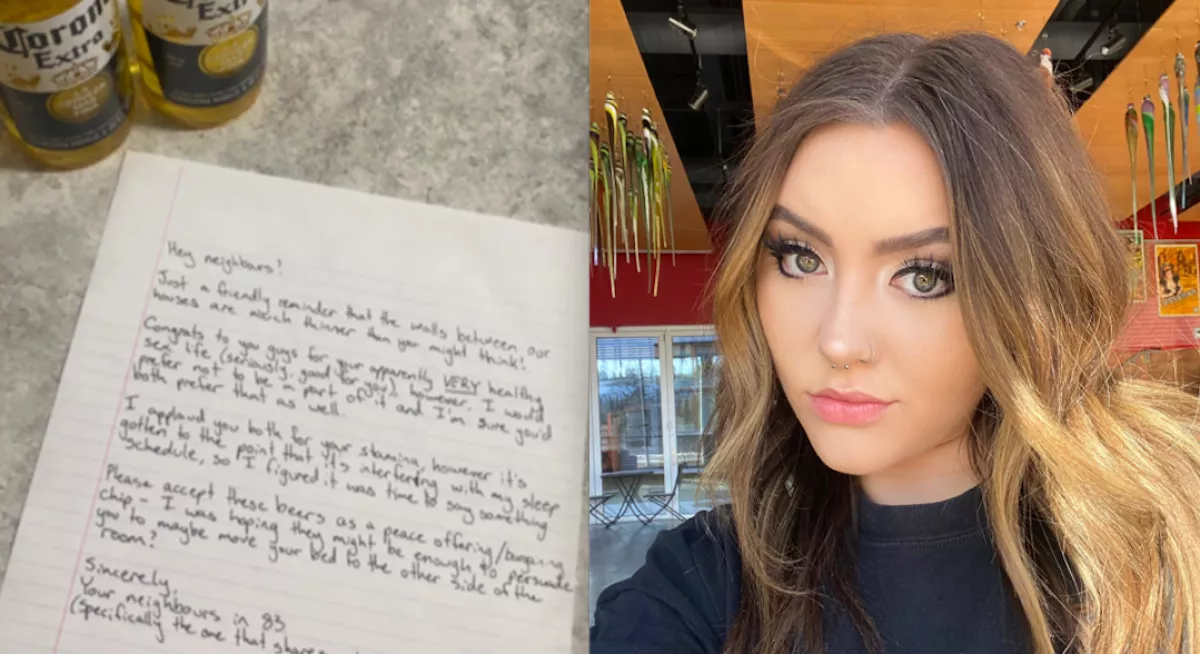 Corona
Extra
Extra
Hey neighbours!
Just a friendly reminder that the walls between our
houses are much thinner than you might think!
Congrats to you guys for your apparently VERY healthy
sex life (seriously, good for you), however, I would
prefer not to be a part of it and I'm sure you'd
both prefer that as well.
I applaud you both for your stamina, however it's
gotten to the point that it's interfering with my sleep
schedule, so I figured it was time to say something
Please accept these beers as a peace offering/bargaining
chip - I was hoping they might be enough to persuade
you to maybe move your bed to the other side of the
room?
Sincerely,
Your neighbours in 83
(specifically the one that shares